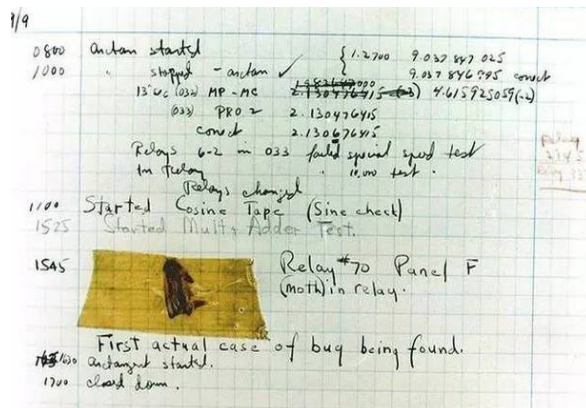 9/9
0800 arctan started { 1.2700 9.037 847 025
1000 " stopped - arctan ✓ 9.037 846 995 correct
13"uc (032) MP-MC 2.130476415 (-3) 4.615925059(-2)
(033) PRO 2 2.130476415
correct 2.130676415
Relays 6-2 in 033 failed special speed test
In Relay " 10,000 test.
Relay
Relays changed
1100 Started Cosine Tape (Sine check)
1525 Started Mult + Adder Test.
1545 Relay #70 Panel F
(moth) in relay.
First actual case of bug being found.
1630 arctangent started.
1700 closed down.